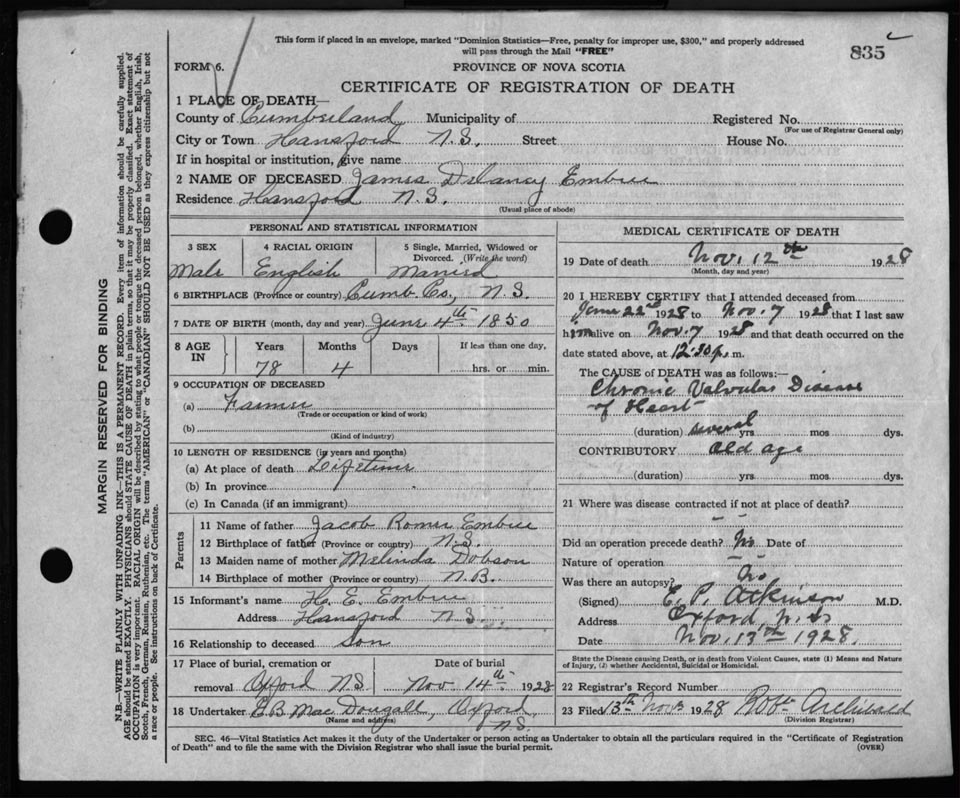 This form if placed in an envelope, marked "Dominion Statistics—Free, penalty for improper use, $300," and properly addressed
will pass through the Mail "FREE"
835
FORM 6.
PROVINCE OF NOVA SCOTIA
CERTIFICATE OF REGISTRATION OF DEATH
1 PLACE OF DEATH—
County of Cumberland Municipality of Registered No.
(For use of Registrar General only)
City or Town Hansford N.S. Street House No.
If in hospital or institution, give name
2 NAME OF DECEASED James Delaney Embree
Residence Hansford N.S.
(Usual place of abode)
PERSONAL AND STATISTICAL INFORMATION
3 SEX 4 RACIAL ORIGIN 5 Single, Married, Widowed or
Divorced. (Write the word)
Male English Married
6 BIRTHPLACE (Province or country) Cumb. Co., N.S.
7 DATE OF BIRTH (month, day and year) June 4th 1850
8 AGE IN Years Months Days If less than one day,
78 4 hrs. or min.
9 OCCUPATION OF DECEASED
(a) Farmer
(Trade or occupation or kind of work)
(b)
(Kind of industry)
10 LENGTH OF RESIDENCE (in years and months)
(a) At place of death Lifetime
(b) In province
(c) In Canada (if an immigrant)
Parents
11 Name of father Jacob Romer Embree
12 Birthplace of father (Province or country) N.S.
13 Maiden name of mother Melinda Dobson
14 Birthplace of mother (Province or country) N.B.
15 Informant's name H. E. Embree
Address Hansford N.S.
16 Relationship to deceased Son
17 Place of burial, cremation or Date of burial
removal Oxford N.S. Nov 14th 1928
18 Undertaker E B MacDougall, Oxford,
(Name and address) N.S.
MEDICAL CERTIFICATE OF DEATH
19 Date of death Nov. 12th 1928
(Month, day and year)
20 I HEREBY CERTIFY that I attended deceased from
June 22nd 1928 to Nov. 7 1928 that I last saw
him alive on Nov. 7 1928 and that death occurred on the
date stated above, at 12:30 p.m.
The CAUSE of DEATH was as follows:—
Chronic Valvular Disease
of Heart
(duration) several yrs mos dys.
CONTRIBUTORY old age
(duration) yrs mos dys.
21 Where was disease contracted if not at place of death?
– –
Did an operation precede death? No Date of
Nature of operation – –
Was there an autopsy? No
(Signed) E. P. Atkinson M.D.
Address Oxford, N.S.
Date Nov. 13th 1928.
State the Disease causing Death, or in death from Violent Causes, state (1) Means and Nature
of Injury, (2) whether Accidental, Suicidal or Homicidal.
22 Registrar's Record Number
23 Filed 13th Novr 1928 Robt Archibald
(Division Registrar)
SEC. 46—Vital Statistics Act makes it the duty of the Undertaker or person acting as Undertaker to obtain all the particulars required in the "Certificate of Registration
of Death" and to file the same with the Division Registrar who shall issue the burial permit.
(OVER)
MARGIN RESERVED FOR BINDING
N.B.—WRITE PLAINLY WITH UNFADING INK—THIS IS A PERMANENT RECORD. Every item of information should be carefully supplied.
AGE should be stated EXACTLY. PHYSICIANS should STATE CAUSE OF DEATH in plain terms, so that it may be properly classified. Exact statement of
OCCUPATION is very important. RACIAL ORIGIN will be described by stating to what people or tongue the deceased person belonged, whether English, Irish,
Scotch, French, German, Russian, Ruthenian, etc. The terms "AMERICAN" or "CANADIAN" SHOULD NOT BE USED as they express citizenship but not
a race or people. See instructions on back of Certificate.